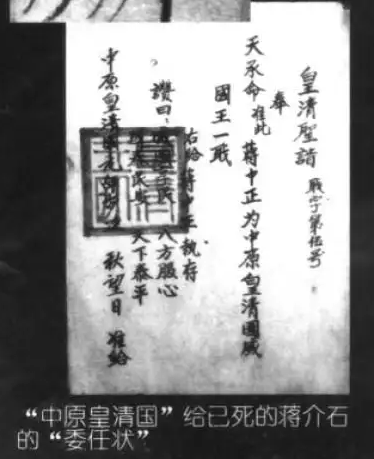 皇清聖請 戰字第伍号
奉
天承命准此 蒋中正为中原皇清國威
國王一戰
右給蒋中正執存
讚曰 八方服心
天下泰平
中原皇清國 秋望日 准給
“中原皇清国”给已死的蒋介石
的“委任状”